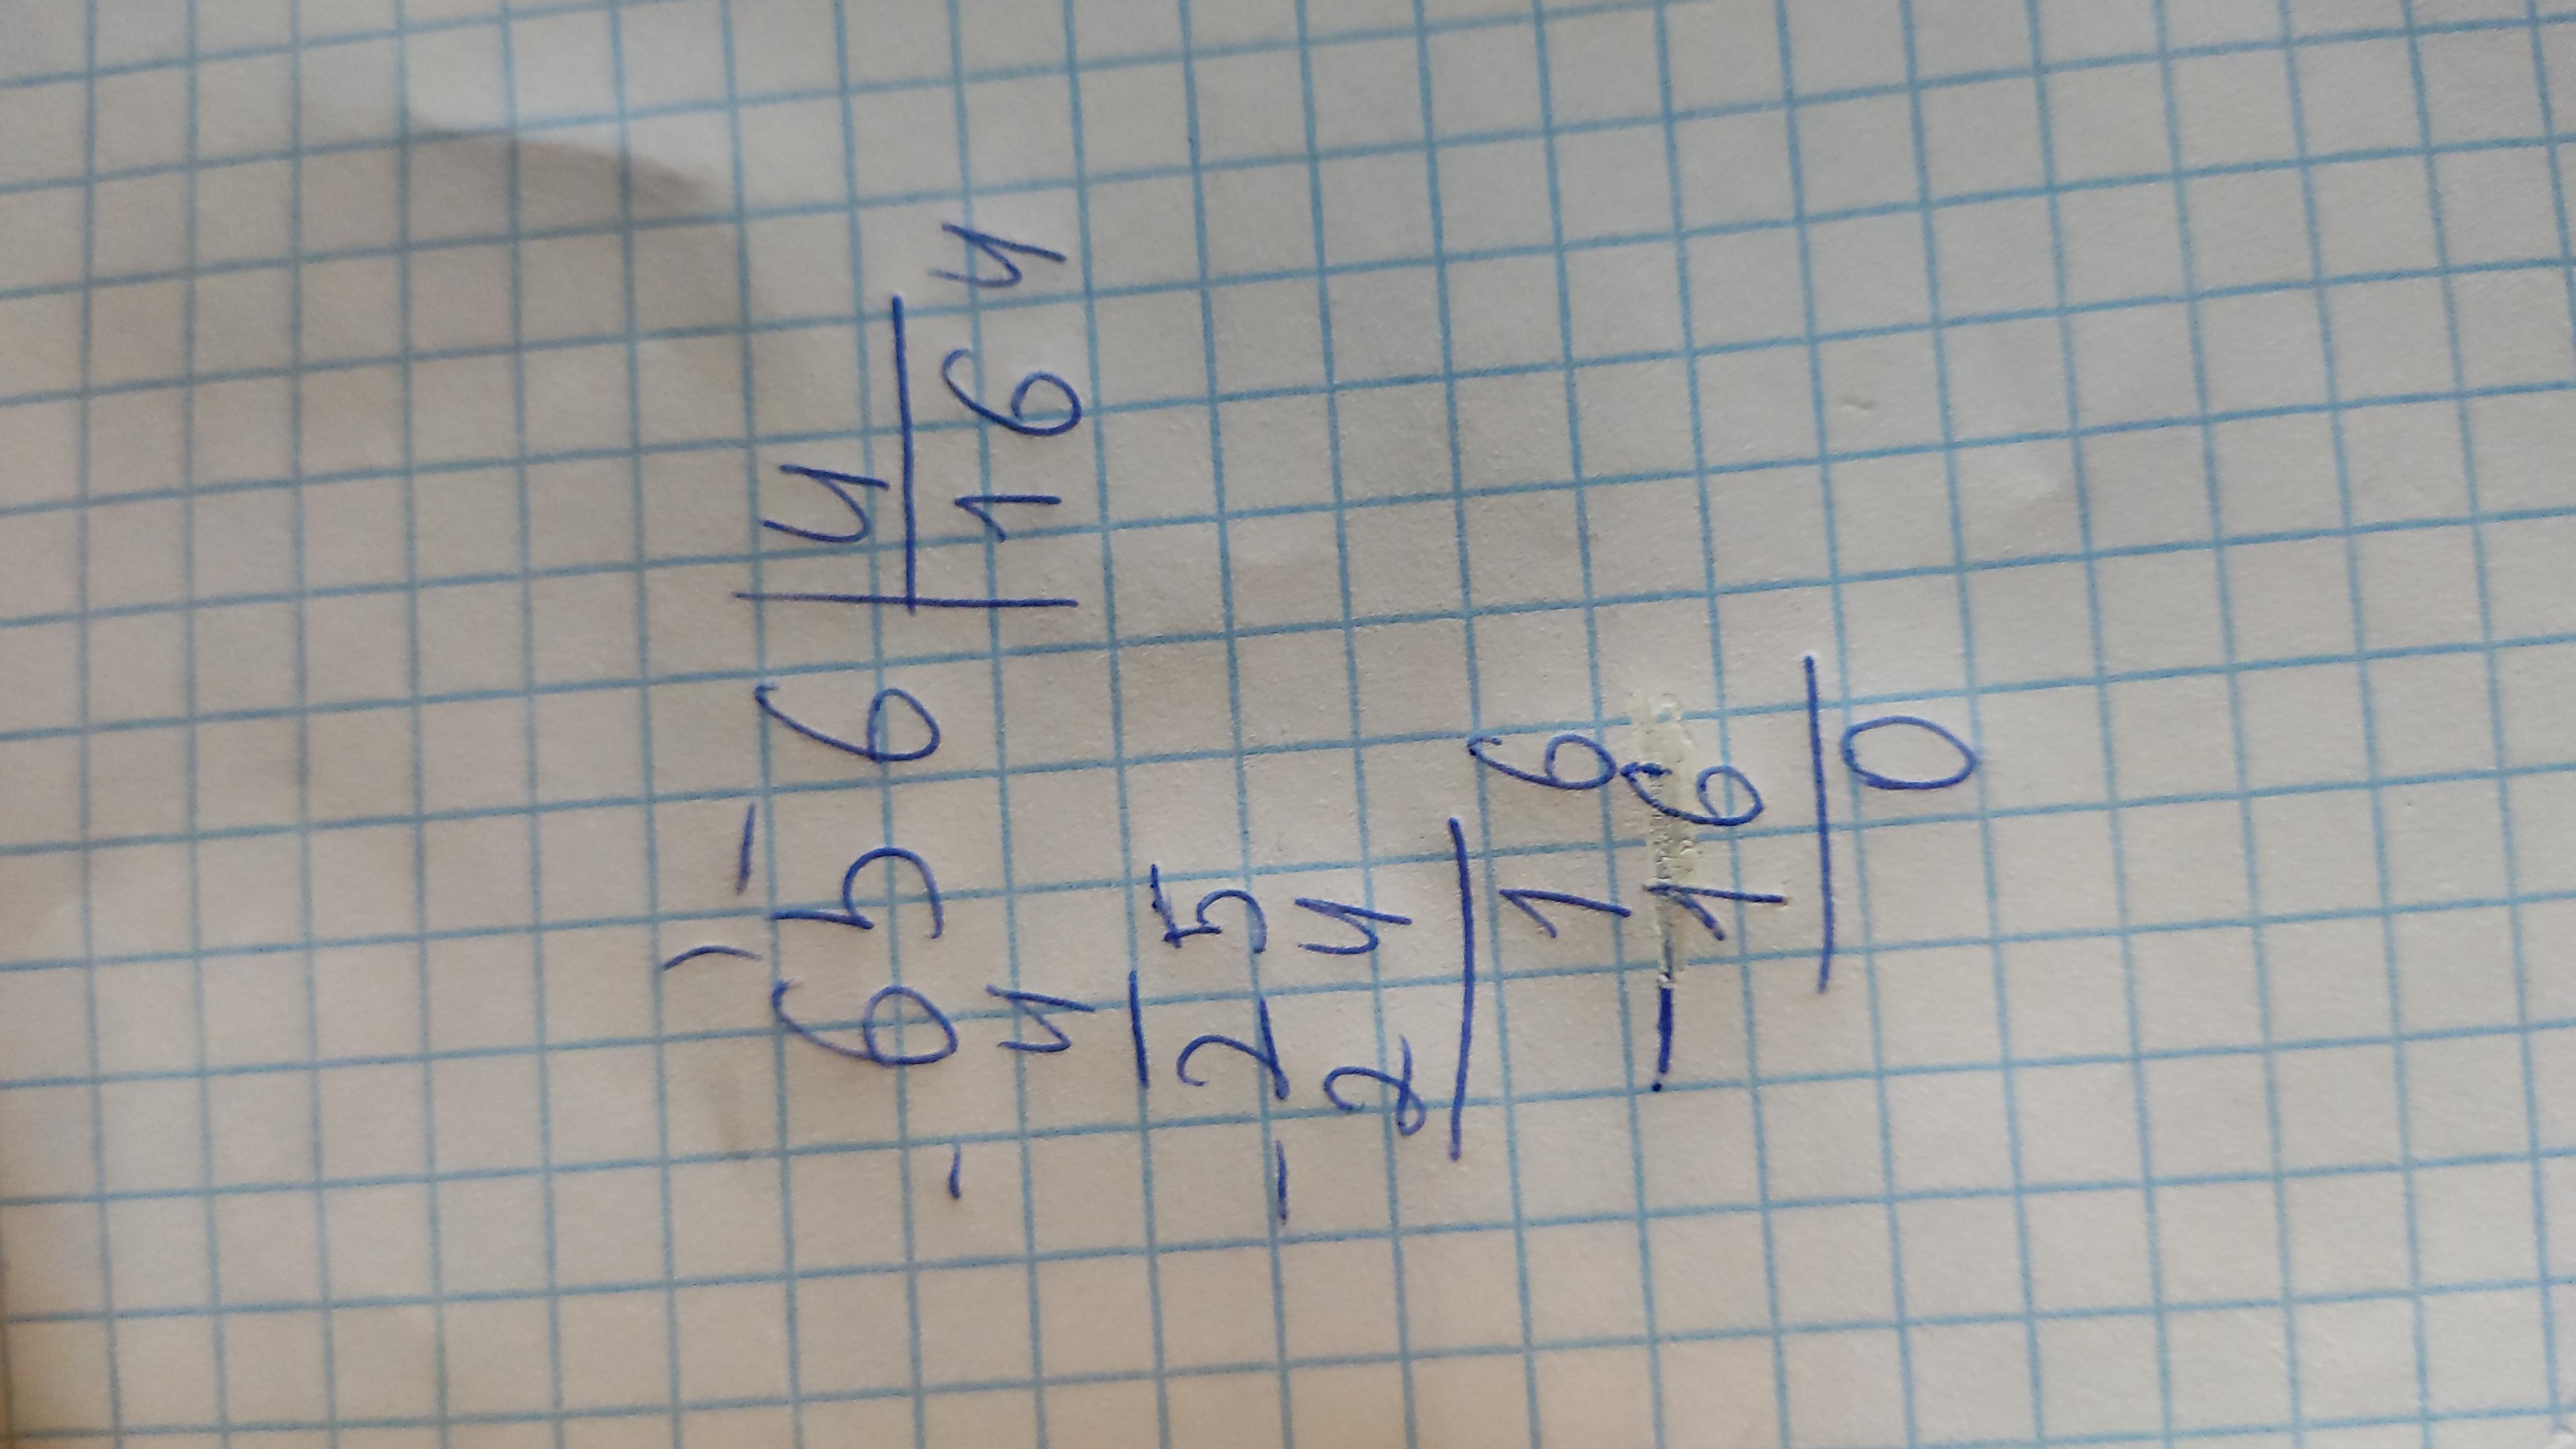 656|4
- 4 164
- 25
24
16
- 16
0